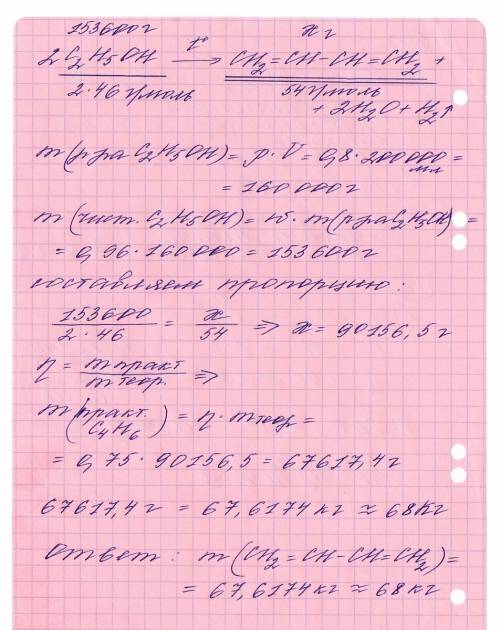 153600г   x г
2C₂H₅OH —t°→ CH₂=CH-CH=CH₂ +
2·46 г/моль   54 г/моль
+ 2H₂O + H₂↑
m(р-ра C₂H₅OH) = ρ·V = 0,8·200000 мл =
= 160 000 г
m(чист. C₂H₅OH) = ω·m(р-ра C₂H₅OH) =
= 0,96·160000 = 153600 г
составляем пропорцию:
153600/2·46 = x/54 => x = 90156,5 г
η = m практ/m теор. =>
m(практ. C₄H₆) = η·mтеор =
= 0,75·90156,5 = 67617,4 г
67617,4 г = 67,6174 кг ≈ 68 кг
Ответ: m(CH₂=CH-CH=CH₂) =
= 67,6174 кг ≈ 68 кг